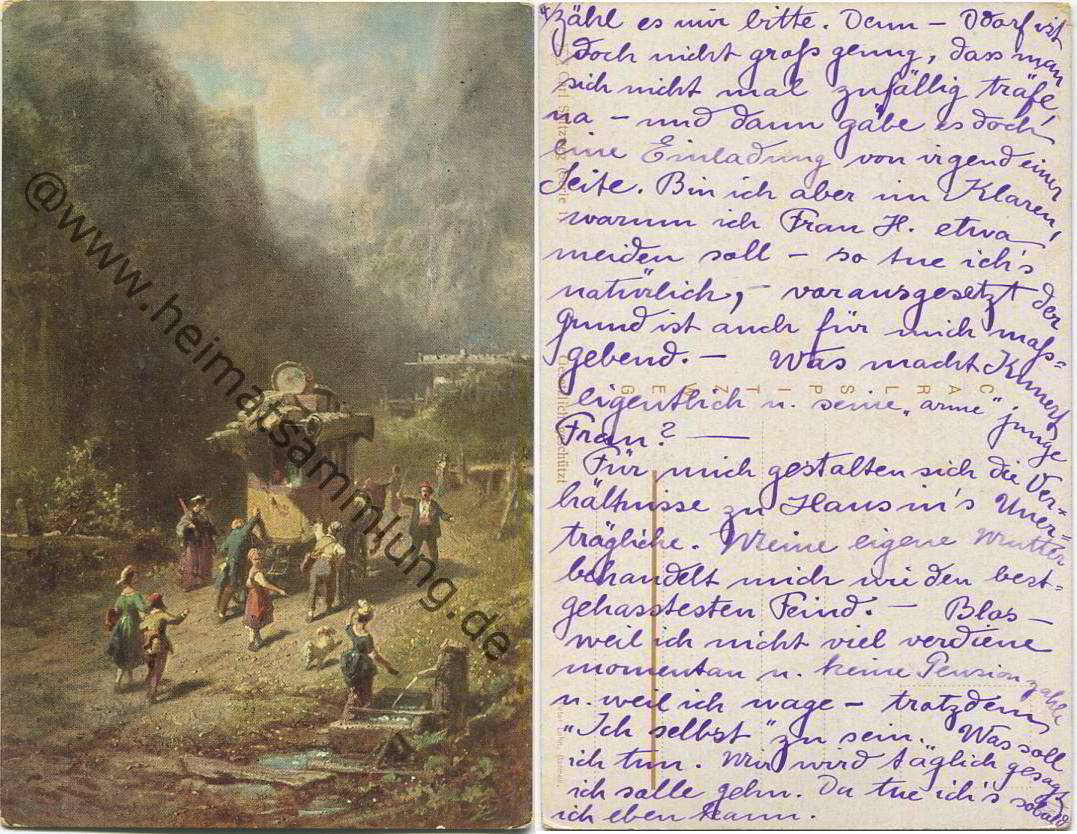 @www.heimatsammlung.de
zähl es mir bitte. Denn – Ddorf ist
doch nicht groß genug, dass man
sich nicht mal zufällig träfe,
na – und dann gäbe es doch
eine Einladung von irgend einer
Seite. Bin ich aber im Klaren,
warum ich Frau H. etwa
meiden soll – so tue ich's
natürlich, – vorausgesetzt der
Grund ist auch für mich maß-
gebend. – Was macht Kunert
eigentlich u. seine „arme" junge
Frau? —
Für mich gestalten sich die Ver-
hältnisse zu Haus in's Uner-
trägliche. Meine eigene Mutter
behandelt mich wie den best-
gehasstesten Feind. – Blos
weil ich nicht viel verdiene
momentan u. keine Pension zahle
u. weil ich wage – trotzdem
„Ich selbst" zu sein. Was soll
ich tun. Mir wird täglich gesagt
ich solle gehn. Da tue ich's sobald
ich eben kann.
CARL SPITZWEG